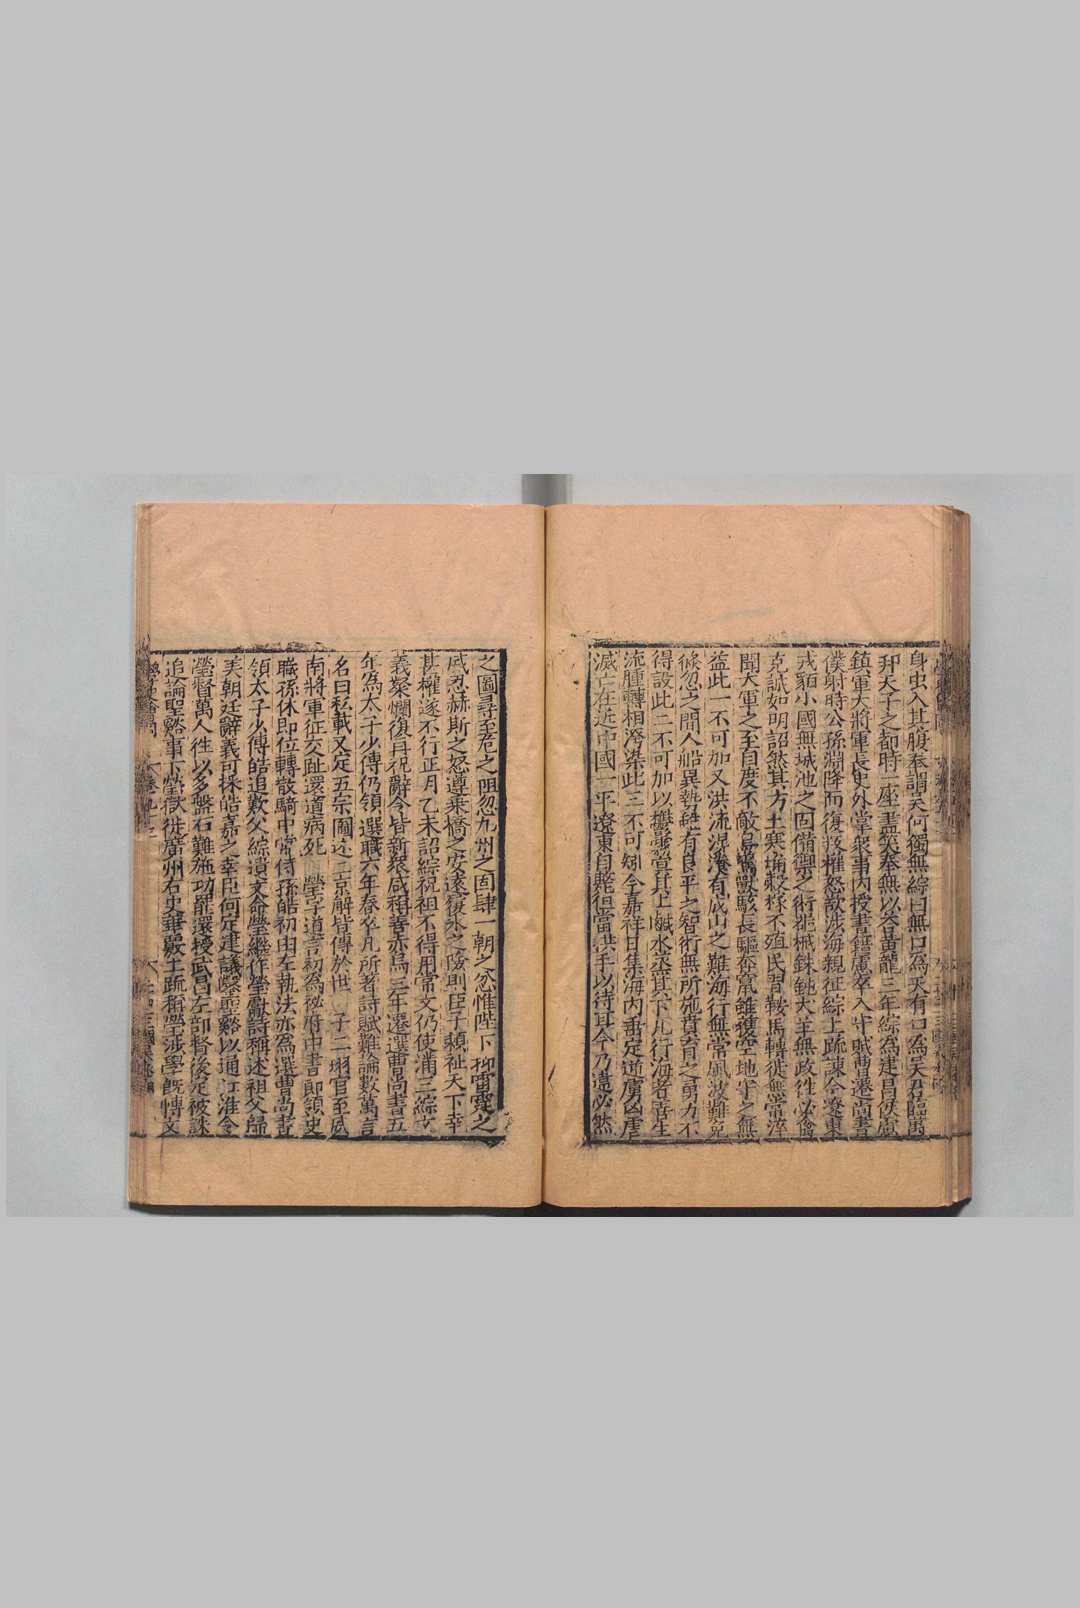 身虫入其腹奉謂吳何獨無綜曰無口為天有口為吳君臨萬
邦天子之都時一座盡笑奉無以荅黃龍三年綜為建昌侯慮
鎮軍大將軍長史外掌衆事內授書籍慮卒入守賊曹遷尚書
僕射時公孫淵降而復叛權怒欲涉海親征綜上疏諫今遼東
戎貊小國無城池之固備禦之術器械銖鈍大羊無政徃必禽
克誠如明詔然其方土寒埆穀稼不殖民習鞍馬轉徙無常淬
聞大軍之至自度不敵鳥驚獸駭長驅奔竄雖獲空地守之無
益此一不可加又洪流滉瀁有成山之難海行無常風波難免
倐忽之間人船異勢雖有良平之智術無所施賁育之勇力不
得設此二不可加以欝霧冥其上鹹水蒸其下凡行海者善生
流腫轉相洿染此三不可矧今嘉祥日集海內垂定逆虜凶虐
滅亡在近中國一平遼東自斃徂當拱手以待耳今乃違必然
之圖尋至危之阻忽九州之固肆一朝之忿惟陛下抑雷霆之
威忍赫斯之怒遵乘橋之安遠履氷之險則臣子頼祉天下幸
甚權遂不行正月乙未詔綜祝祖不得用常文仍使滿三綜文
義粲爛復再祝辭令皆新衆咸稱善赤烏三年遷選曹尚書五
年為太子少傅仍領選職六年春卒凡所著詩賦難論數萬言
名曰私載又定五宗圖述二京解皆傳於世 子二珝官至威
南將軍征交趾還道病死 瑩字道言初為祕府中書郎領史
職孫休即位轉散騎中常侍孫皓初由左執法亦為選曹尚書
領太子少傅皓追歎父綜遺文命瑩繼作瑩獻詩稱述祖父歸
美朝廷辭義可採皓嘉之幸臣何定建議鑿聖谿以通江淮令
瑩督萬人徃以多盤石難施功罷還授武昌左部督後定被誅
追論聖谿事下瑩獄徙廣州右史華覈上疏稱瑩涉學旣愽文